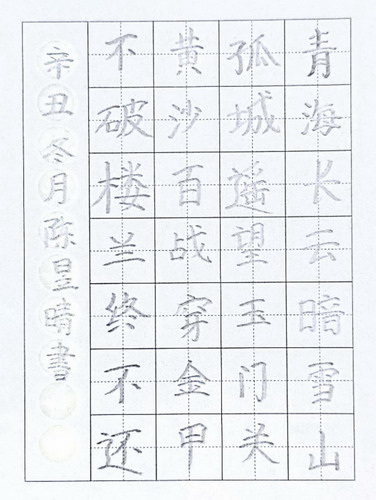 青海长云暗雪山
孤城遥望玉门关
黄沙百战穿金甲
不破楼兰终不还
辛丑冬月陈星晴書